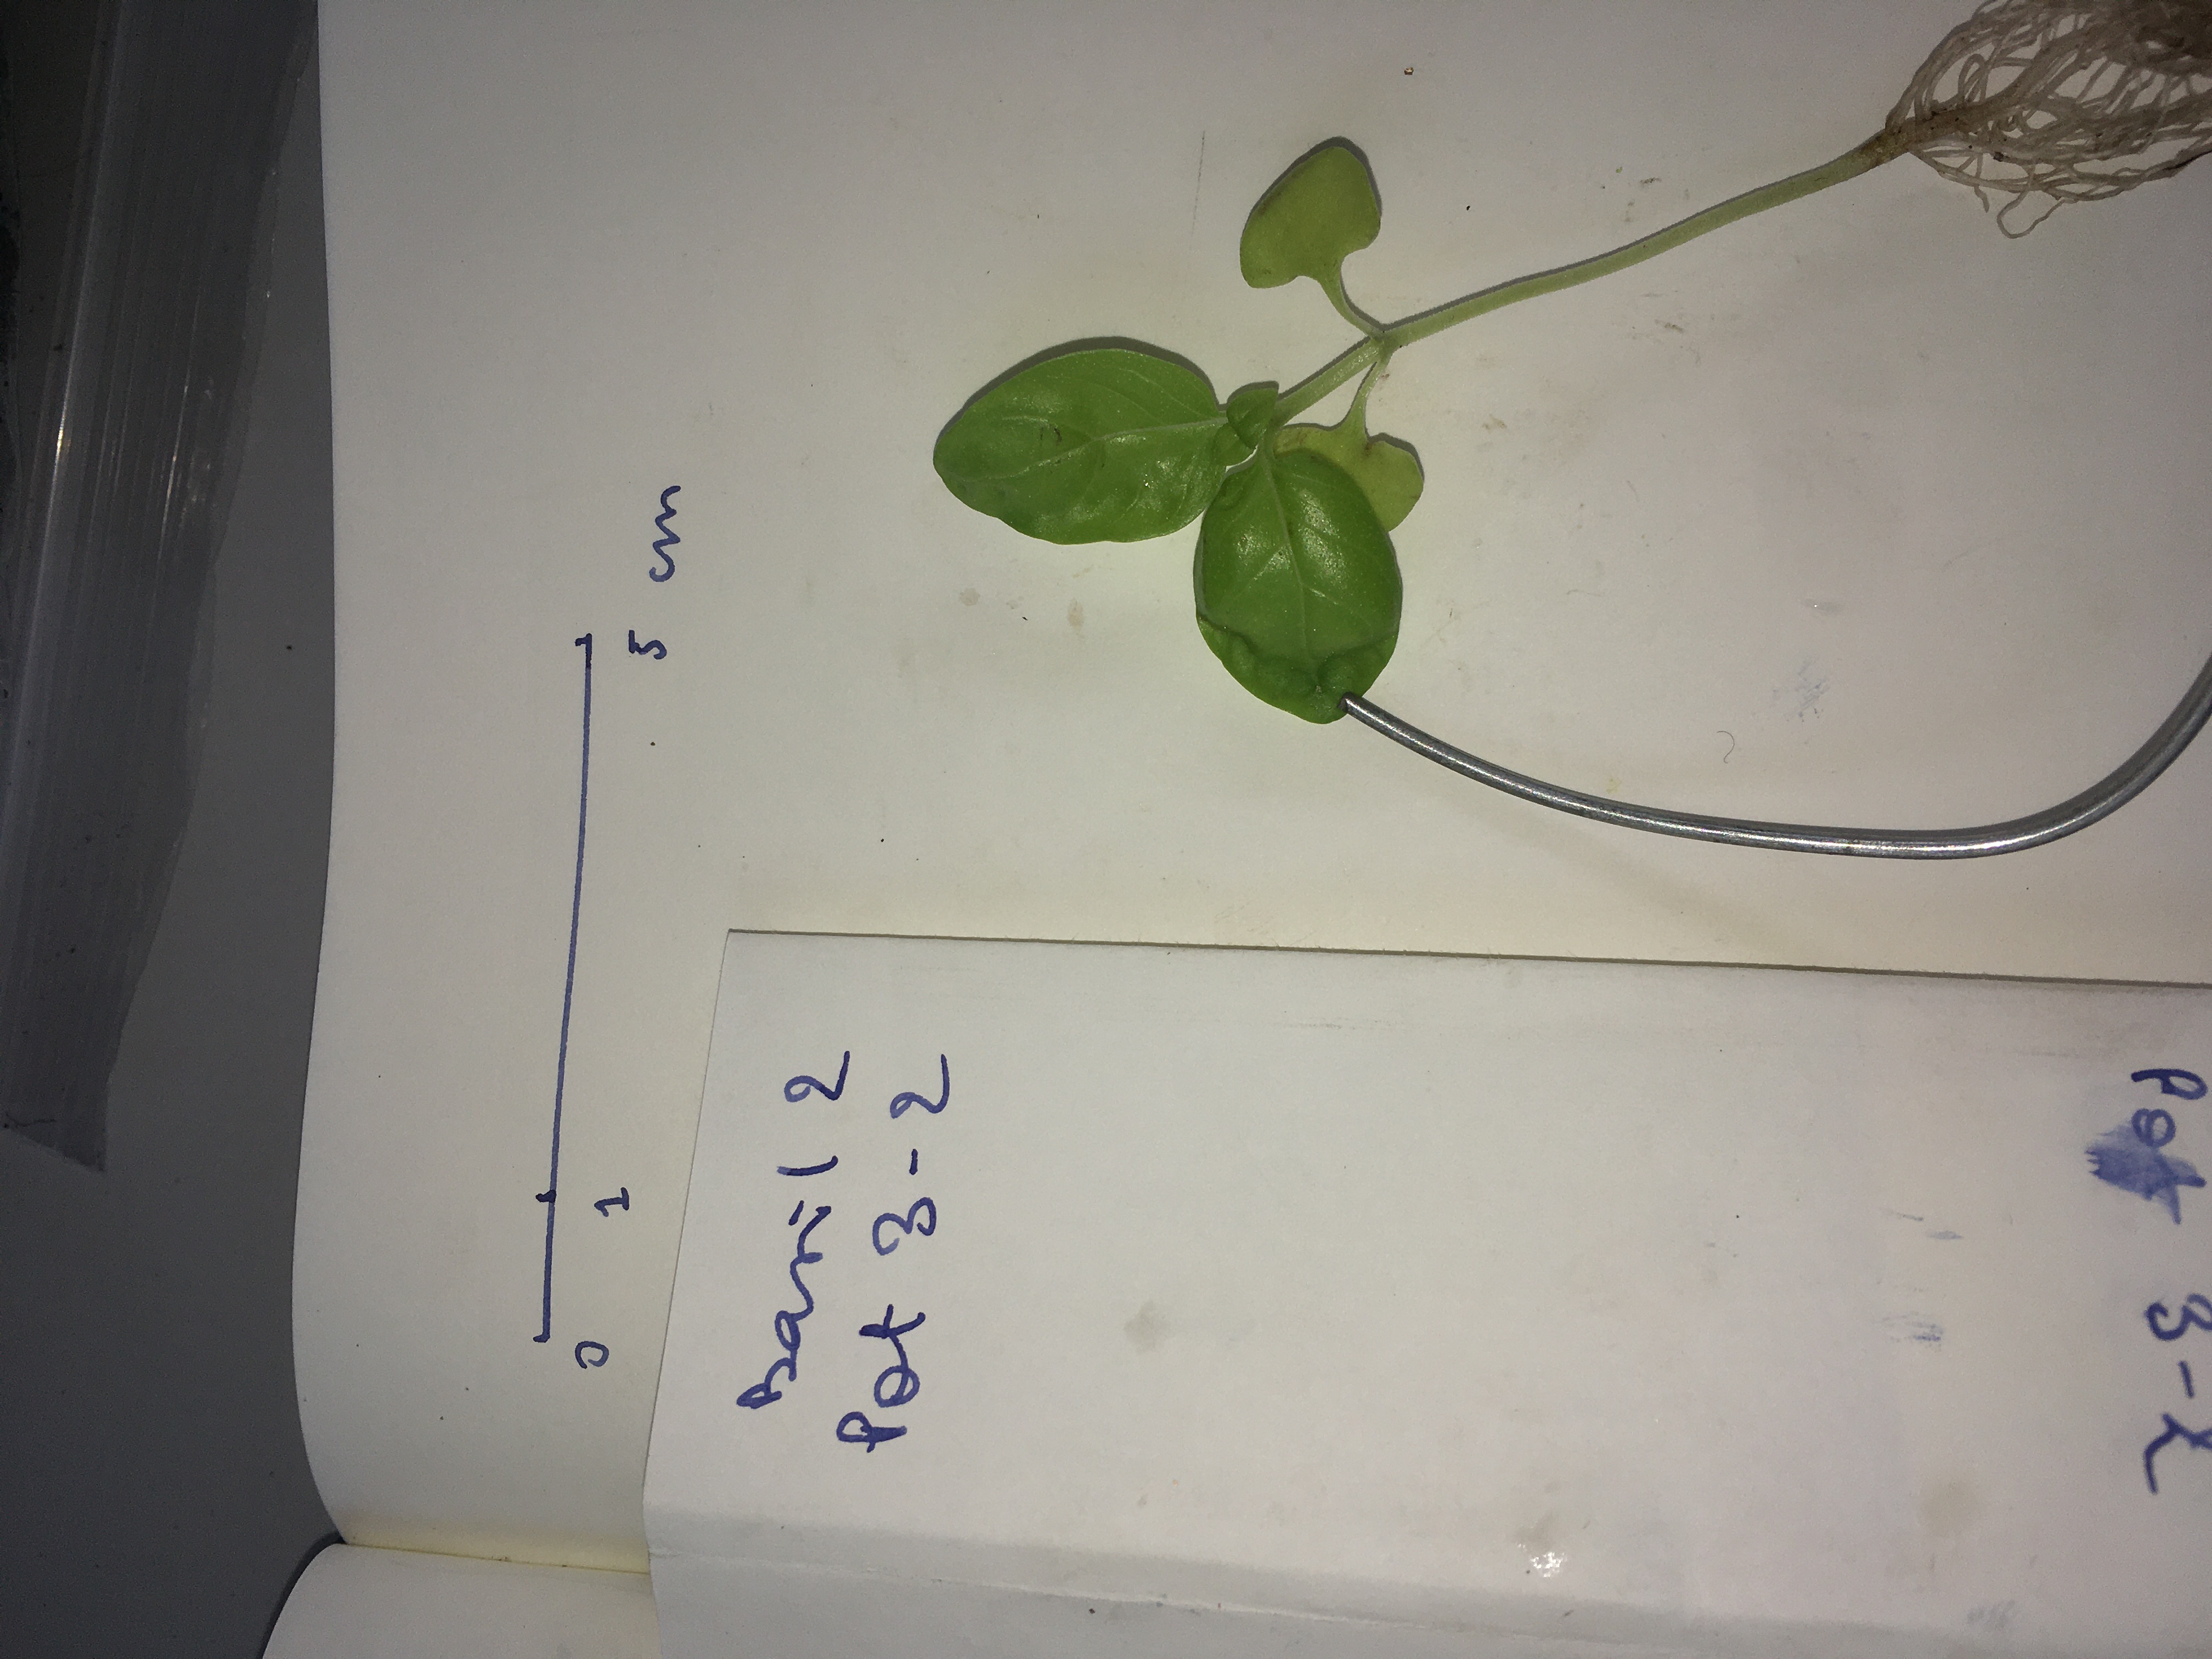 0 1 5 cm
Basil 2
Pot 3-2
Pot 3-2